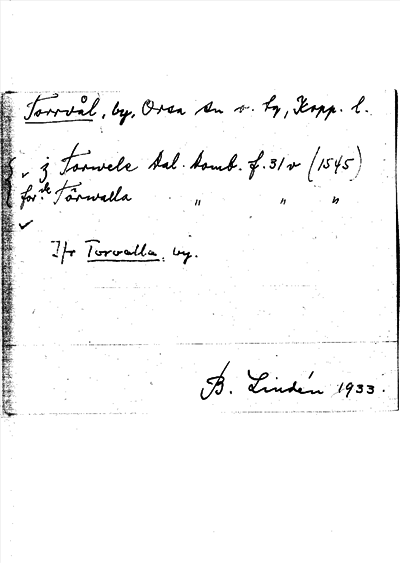 Torrvål, by, Orsa sn o. tg, Kopp. l.
j Torwele Dal. domb. f. 31 v (1545)
for: Tørwalla " " "
Jfr Torvalla, by.
B. Lindén 1933.